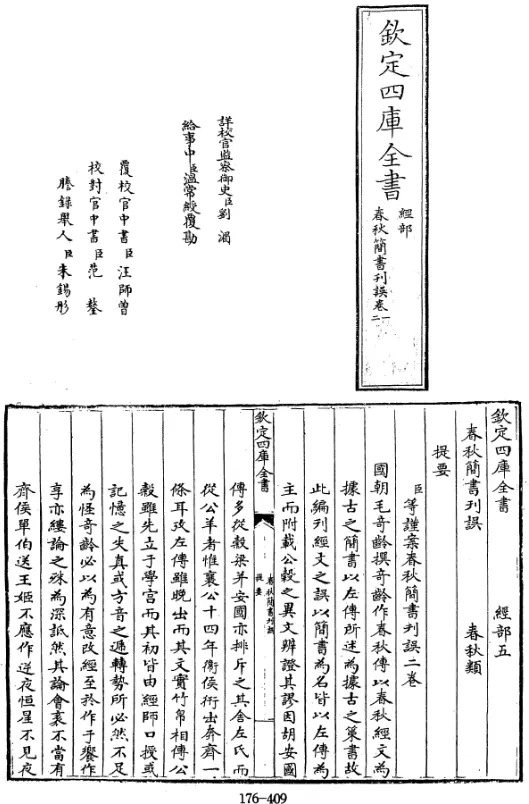 欽定四庫全書
經部
春秋簡書刊誤卷一二
詳校官監察御史臣劉湄
給事中臣溫常綬覆勘
覆校官中書臣汪師曾
校對官中書臣范鏊
謄錄舉人臣朱錫彤
欽定四庫全書 經部五
春秋簡書刊誤 春秋類
提要
臣等謹案春秋簡書刊誤二卷
國朝毛奇齡撰奇齡作春秋傳以春秋經文為
據古之簡書以左傳所述為據古之策書故
此編刊經文之誤以簡書為名皆以左傳為
主而附載公穀之異文辨證其謬因胡安國
欽定四庫全書
春秋簡書刊誤
提要
一
傳多從穀梁并安國亦排斥之其舍左氏而
從公羊者惟襄公十四年衞侯衎出奔齊一
條耳攷左傳雖晚出而其文實竹帛相傳公
穀雖先立于學官而其初皆由經師口授或
記憶之失真或方音之遞轉勢所必然不足
為怪奇齡必以為有意改經至於作于饗作
享亦縷論之殊為深詆然其論會袲不當有
齊侯單伯送王姬不應作逆夜恒星不見夜
176-409